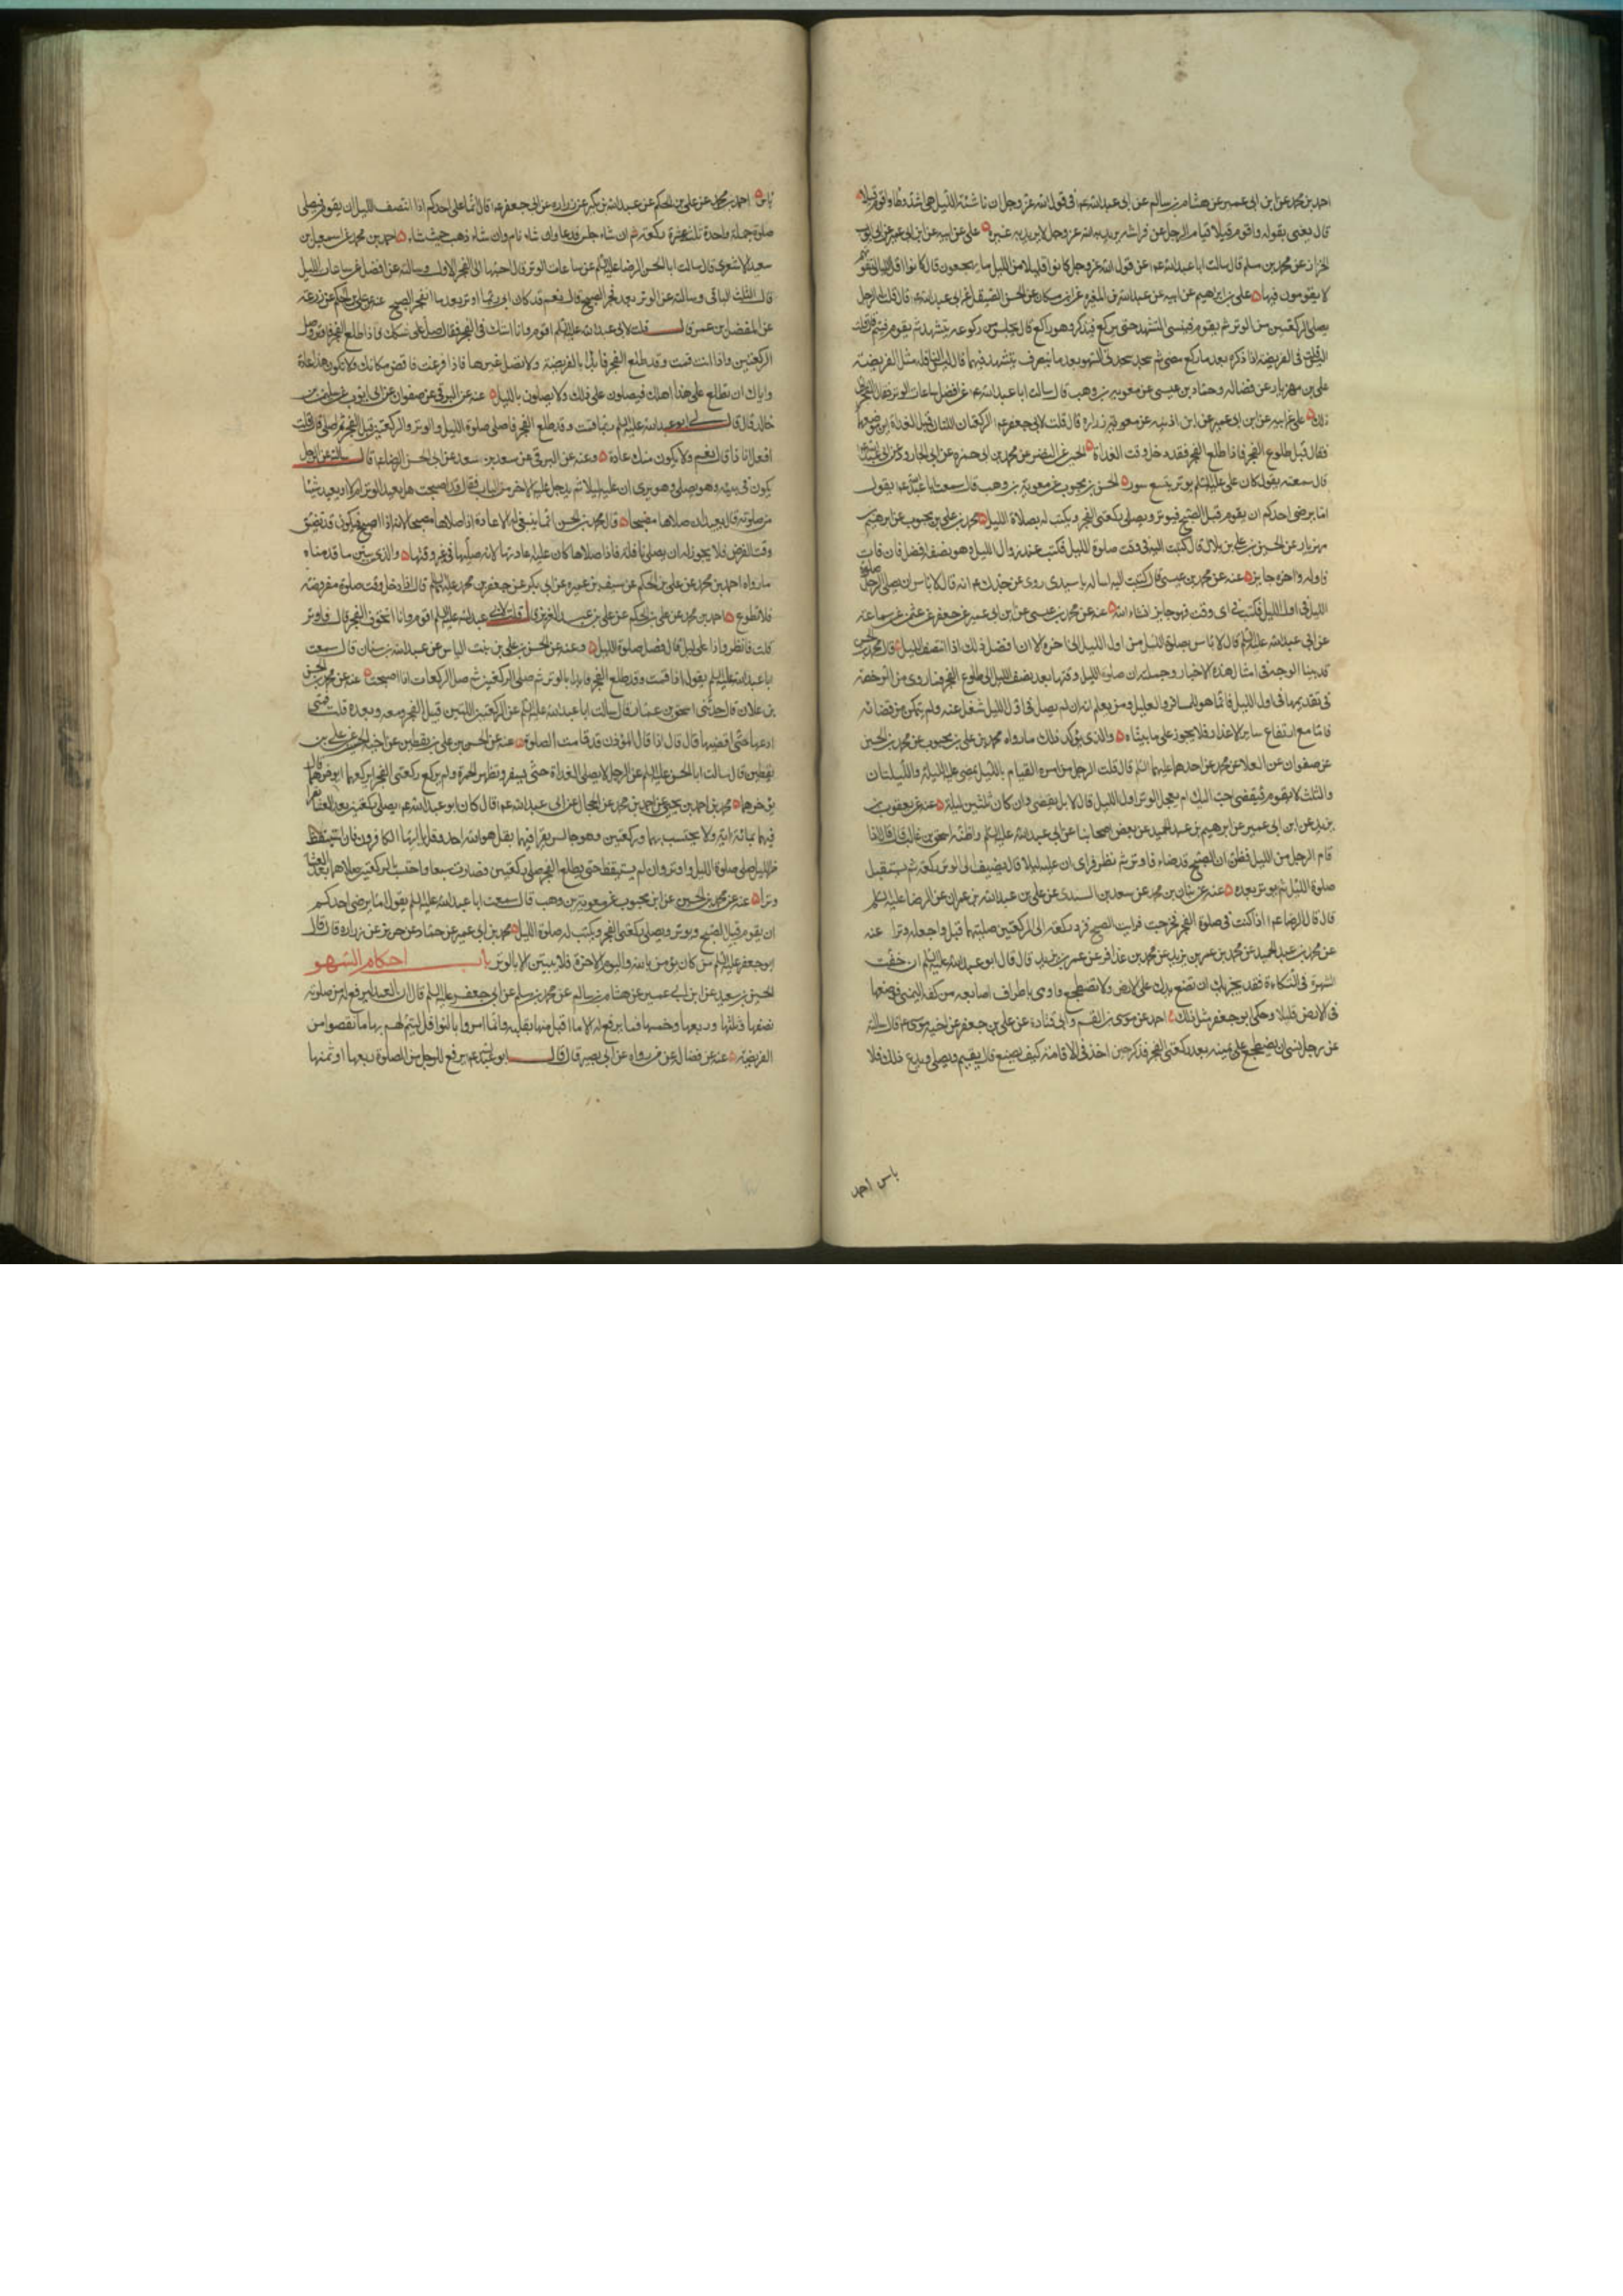 احمد بن محمد عن ابن ابى عمير عن هشام بن سالم عن ابى عبد الله ع فى قول الله عز وجل ان ناشئة الليل هى اشد وطا واقوم قيلا
قال يعنى بقوله واقوم قيلا قيام الرجل عن فراشه يريد به الله عز وجل لا يريد به غيره على عن ابيه عن ابن ابى عمير عن ابى ايوب
الخزاز عن محمد بن مسلم قال سالت ابا عبد الله ع عن قول الله عز وجل كانوا قليلا من الليل ما يهجعون قال كانوا اقل الليالى تفوتهم
لا يقومون فيها على بن ابرهيم عن ابيه عن عبد الله بن المغيرة عن ابن مسكان عن الحسن الصيقل عن ابى عبد الله ع قال قلت له الرجل
يصلى الركعتين من الوتر ثم يقوم فينسى التشهد حتى يركع فيذكر وهو راكع قال يجلس من ركوعه يتشهد ثم يقوم فيتم قال قلت
اليس قلت فى الفريضة اذا ذكره بعد ما ركع مضى ثم سجد سجدتى السهو بعد ما ينصرف يتشهد فيهما قال ليس النافلة مثل الفريضة
على بن مهزيار عن فضالة وحماد بن عيسى عن معوية بن وهب قال سالت ابا عبد الله ع عن افضل ساعات الوتر فقال الفجر اول
ذلك على عن ابيه عن ابن ابى عمير عن ابن اذينه عن زرارة قال قلت لابى جعفر ع الركعتان اللتان قبل الغداة اين موضعهما
فقال قبل طلوع الفجر فاذا طلع الفجر فقد دخل وقت الغداة
قال سمعته يقول كان على عليه السلم يوتر بتسع سور الحسن بن محبوب عن معوية بن وهب قال سمعت ابا عبد الله ع يقول
اما يرضى احدكم ان يقوم قبل الصبح فيوتر ويصلى ركعتى الفجر ويكتب له بصلاة الليل محمد بن على بن محبوب عن ابرهيم
مهزيار عن الحسين بن على بن بلال قال كتبت اليه فى وقت صلوة الليل فكتب عند زوال الليل وهو نصفه افضل فان فات
فاوله واخره جايز عنه عن محمد بن عيسى قال كتبت اليه اساله يا سيدى روى عن جدك ع انه قال لا باس ان يصلى الرجل صلوة
الليل فى اول الليل فكتب فى اى وقت صلى فهو جايز انشاء الله عنه عن محمد بن عيسى عن ابن ابى عمير عن جعفر بن عثمن عن سماعة
عن ابى عبد الله عليه السلم قال لا باس بصلوة الليل من اول الليل الى اخره الا ان افضل ذلك اذا انتصف الليل قال محمد بن الحسن
قد بينا الوجه فى امثال هذه الاخبار وجملته ان صلوة الليل وقتها بعد نصف الليل الى طلوع الفجر فما روى من الرخصة
فى تقديمها فى اول الليل فانما هو للمسافر والعليل ومن يعلم انه ان لم يصل فى اول الليل شغل عنه ولم يتمكن من قضائه
فاما مع ارتفاع ساير الاعذار فلا يجوز على ما بيناه والذى يؤكد ذلك ما رواه محمد بن على بن محبوب عن محمد بن الحسين
عن صفوان عن العلا عن محمد عن احدهما عليهما السلم قال قلت الرجل من امره القيام بالليل يمضى عليه الليلة والليلتان
والثلث لا يقوم فيقضى احب اليك ام يعجل الوتر اول الليل قال لا بل يقضى وان كان ثلثين ليلة عنه عن يعقوب بن
يزيد عن ابن ابى عمير عن ابرهيم بن عبد الحميد عن بعض اصحابنا عن ابى عبد الله عليه السلم واظنه اسحق بن غالب قال قال اذا
قام الرجل من الليل فظن ان الصبح قد ضاء فاوتر ثم نظر فراى ان عليه ليلا قال يضيف الى الوتر ركعة ثم يستقبل
صلوة الليل ثم يوتر بعده عنه عن بنان بن محمد عن سعد بن السندى عن على بن عبد الله بن عمران عن الرضا عليه السلم
قال قال الرضا ع اذا كنت فى صلوة الفجر فخرجت فرايت الصبح فزد ركعة الى الركعتين صليتهما قبل واجعله وترا عنه
عن محمد بن عبد الحميد عن محمد بن عمر بن يزيد عن محمد بن عذافر عن عمر بن يزيد قال قال ابو عبد الله عليه السلم ان خفت
الشهرة فى التكاءة فقد يجزيك ان تضع يدك على الارض ولا تضطجع واومى باطراف اصابعه من كفه اليمنى فوضعها
فى الارض قليلا وحكى ابو جعفر مثل ذلك احمد عن موسى بن القسم وابى قتادة عن على بن جعفر عن اخيه موسى ع قال سالته
عن رجل نسى ان يضطجع على يمينه بعد ركعتى الفجر فذكر حين اخذ فى الاقامة كيف يصنع قال يقيم ويصلى ويدع ذلك فلا
باس احمد
باس احمد بن محمد عن على بن الحكم عن عبد الله بن بكير عن زرارة عن ابى جعفر ع قال انما على احدكم اذا انتصف الليل ان يقوم فيصلى
صلوته جملة واحدة ثلث عشرة ركعة ثم ان شاء جلس فدعا وان شاء نام وان شاء ذهب حيث شاء احمد بن محمد عن اسمعيل بن
سعد الاشعرى قال سالت ابا الحسن الرضا عليه السلم عن ساعات الوتر قال احبها الى الفجر الاول وسالته عن افضل ساعات الليل
قال الثلث الباقى وسالته عن الوتر بعد فجر الصبح قال نعم قد كان ابى ربما اوتر بعد ما انفجر الصبح عنه عن على بن الحكم عن زرعة
عن المفضل بن عمر قال قلت لابى عبد الله عليه السلم اقوم وانا اشك فى الفجر فقال صل على شكك فاذا طلع الفجر فاوتر وصل
الركعتين واذا انت قمت وقد طلع الفجر فابدا بالفريضة ولا تصل غيرها فاذا فرغت فاقض ما فاتك ولا يكون هذا عادة
واياك ان تطلع على هذا اهلك فيصلون على ذلك ولا يصلون بالليل عنه عن البرقى عن صفوان عن ابى ايوب عن سليمن بن
خالد قال قال لى ابو عبد الله عليه السلم ربما قمت وقد طلع الفجر فاصلى صلوة الليل والوتر والركعتين قبل الفجر ثم اصلى الفجر قال قلت
افعل انا ذا قال نعم ولا يكون منك عادة وعنه عن البرقى عن سعد بن سعد عن ابى الحسن الرضا ع قال سالته عن الرجل
يكون فى بيته وهو يصلى وهو يرى ان عليه ليلا ثم يدخل عليه الاخر من الباب فقال قد اصبحت هل يعيد الوتر ام لا او يعيد شيئا
من صلوته قال يعيد ان صلاها مصبحا قال محمد بن الحسن انما ينبغى له الاعادة اذا صلاها مصبحا لانه اذا اصبح فيكون قد تضيق
وقت الفرض فلا يجوز له ان يصلى نافلة فاذا صلاها كان عليه اعادتها لانه صليها فى غير وقتها والذى يبين ما قدمناه
ما رواه احمد بن محمد عن على بن الحكم عن سيف بن عميرة عن ابى بكر عن جعفر بن محمد عليه السلم قال اذا دخل وقت صلوة مفروضة
فلا تطوع احمد بن محمد عن على بن الحكم عن على بن عبد العزيز قال قلت لابى عبد الله عليه السلم اقوم وانا اتخوف الفجر قال فاوتر
قلت فانظر فاذا على ليل قال فصل صلوة الليل وعنه عن الحسن بن على بن بنت الياس عن عبد الله بن سنان قال سمعت
ابا عبد الله عليه السلم يقول اذا قمت وقد طلع الفجر فابدا بالوتر ثم صل الركعتين ثم صل الركعات اذا اصبحت عنه عن محمد بن الحسن
بن علان قال حدثنى اسحق بن عمار قال سالت ابا عبد الله عليه السلم عن الركعتين اللتين قبل الفجر قال قبل الفجر ومعه وبعده قلت فمتى
ادعها حتى اقضيها قال قال اذا قال المؤذن قد قامت الصلوة عنه عن الحسن بن على بن يقطين عن اخيه الحسين عن على بن
يقطين قال سالت ابا الحسن عليه السلم عن الرجل لا يصلى الغداة حتى يسفر وتظهر الحمرة ولم يركع ركعتى الفجر ايركعهما او يؤخرهما قال
يؤخرهما محمد بن احمد بن يحيى عن احمد بن محمد عن الحجال عن ابى عبد الله ع قال كان ابو عبد الله ع يصلى ركعتين بعد العشا يقرا
فيهما بمائة اية ولا يحتسب بهما وركعتين وهو جالس يقرا فيهما بقل هو الله احد وقل يا ايها الكافرون فان استيقظ
من الليل صلى صلوة الليل واوتر وان لم يستيقظ حتى يطلع الفجر صلى ركعتين فصارت سبعا واحتسب بالركعتين صلاهما بعد العشا
وترا عنه عن محمد بن الحسين عن ابن محبوب عن معوية بن وهب قال سمعت ابا عبد الله عليه السلم يقول اما يرضى احدكم
ان يقوم قبل الصبح ويوتر ويصلى ركعتى الفجر ويكتب له صلوة الليل محمد بن ابى عمير عن حماد عن حريز عن زرارة قال قال
ابو جعفر عليه السلم من كان يؤمن بالله واليوم الاخر فلا يبيتن الا بالوتر باب احكام السهو
الحسين بن سعيد عن ابن ابى عمير عن هشام بن سالم عن محمد بن مسلم عن ابى جعفر عليه السلم قال ان العبد ليرفع له من صلوته
نصفها وثلثها وربعها وخمسها فما يرفع له الا ما اقبل منها بقلبه وانما امروا بالنوافل ليتم لهم بها ما نقصوا من
الفريضة عنه عن فضالة عن من رواه عن ابى بصير قال قال ابو عبد الله ع يرفع للرجل من الصلوة ربعها او ثمنها